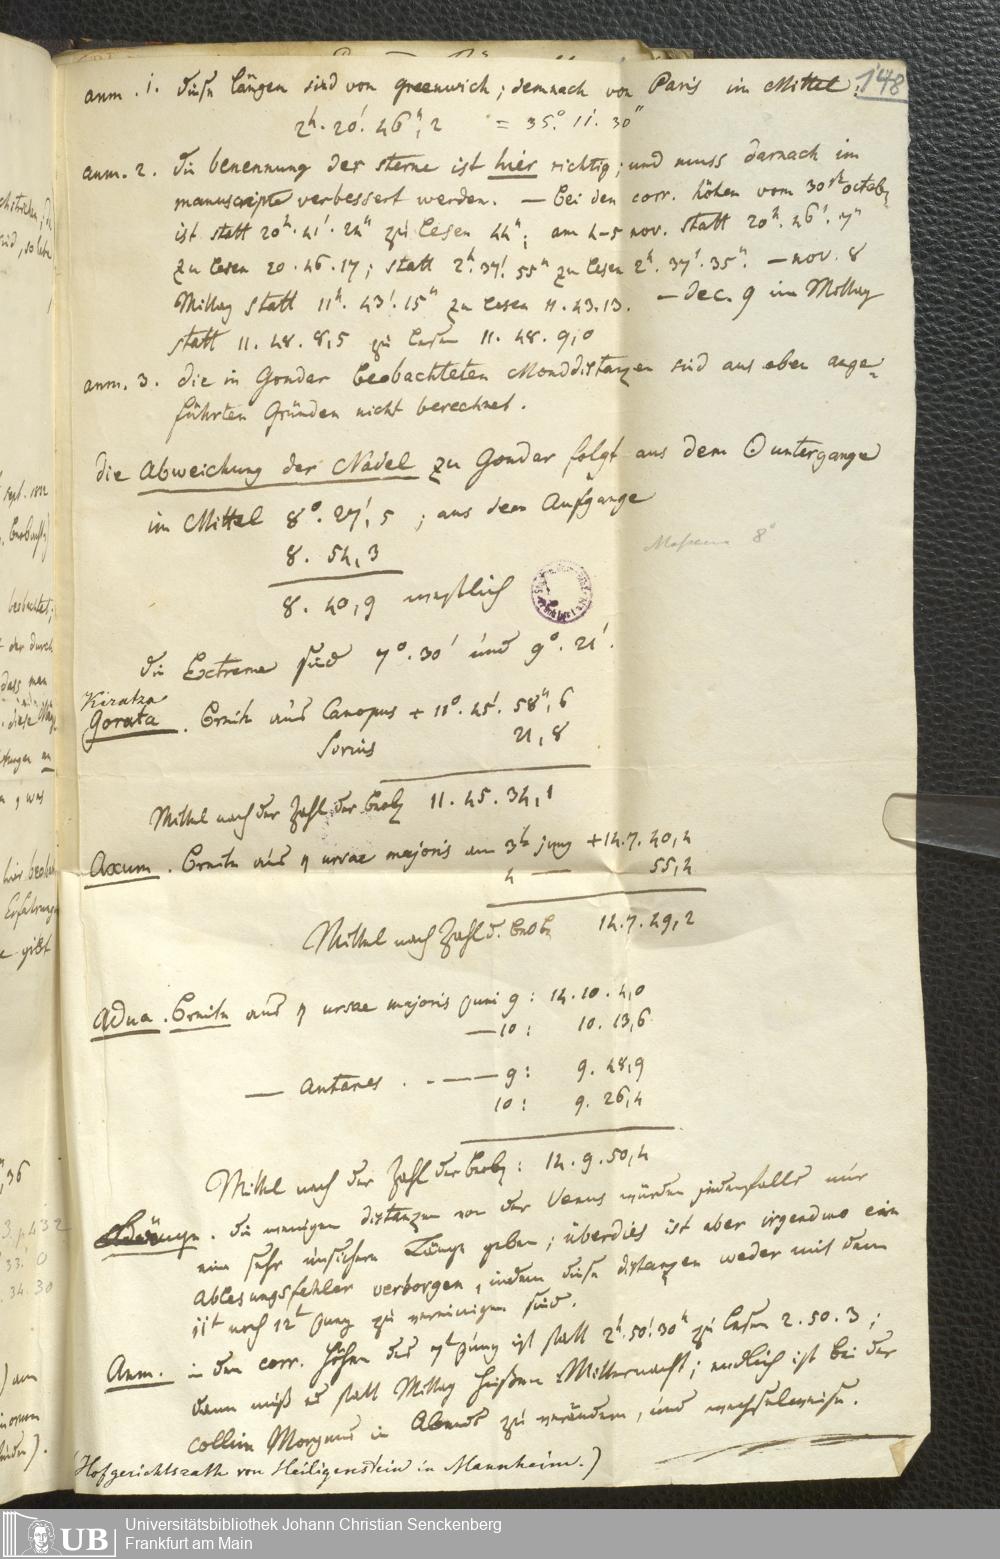 148
anm. 1. diese längen sind von Greenwich; demnach von Paris im Mittel:
2h. 20'. 46",2 = 35°. 11'. 30"
anm. 2. die benennung der sterne ist hier richtig; und muss darnach im
manuscripte verbessert werden. — bei den corr. höhen vom 30st octob.
ist statt 20h. 41'. 24" zu lesen 44"; am 4-5 nov. statt 20h. 46'. 7"
zu lesen 20. 46. 17; statt 2h. 37'. 55" zu lesen 2h. 37'. 35". — nov. 8
Mittag statt 11h. 43'. 15" zu lesen 11. 43. 13. — dec. 9 im Mittag
statt 11. 48. 8,5 zu lesen 11. 48. 9,0
anm. 3. die in Gondar beobachteten Monddistanzen sind aus eben ange-
führten Gründen nicht berechnet.
die Abweichung der Nadel zu Gondar folgt aus dem ⊙untergange
im Mittel 8°. 27',5 ; aus dem Aufgange
8. 54,3
8. 40,9 westlich
die Extreme sind 7°. 30' und 9°. 21'.
Kiratza
Gorata. Breite aus Canopus + 11°. 45'. 58",6
Sirius 21,8
Mittel nach der Zahl der beob. 11. 45. 34,1
Axum. Breite aus η ursae majoris am 3t juny +14. 7. 40,4
4 — 55,4
Mittel nach Zahl d. beob. 14. 7. 49,2
Adua. Breite aus η ursae majoris Juni 9: 14. 10. 4,0
— 10: 10. 13,6
— Antares . - — — 9: 9. 48,9
10: 9. 26,4
Mittel nach der Zahl der beob.: 14. 9. 50,4
die wenigen distanzen von der Venus würden jedenfalls nur
eine sehr unsichere Länge geben; überdies ist aber irgendwo ein
Ablesungsfehler verborgen, indem diese distanzen weder mit dem
11t noch 12t Juny zu vereinigen sind.
Anm. in den corr. Höhen des 7t Juny ist statt 2h. 50'. 30" zu lesen 2. 50. 3;
dann muß es statt Mittag heißen Mitternacht; endlich ist bei der
collim Morgens in Abends zu verändern, und wechselweise.
(Hofgerichtsrath von Heiligenstein in Mannheim.)
Universitätsbibliothek Johann Christian Senckenberg
Frankfurt am Main
UB